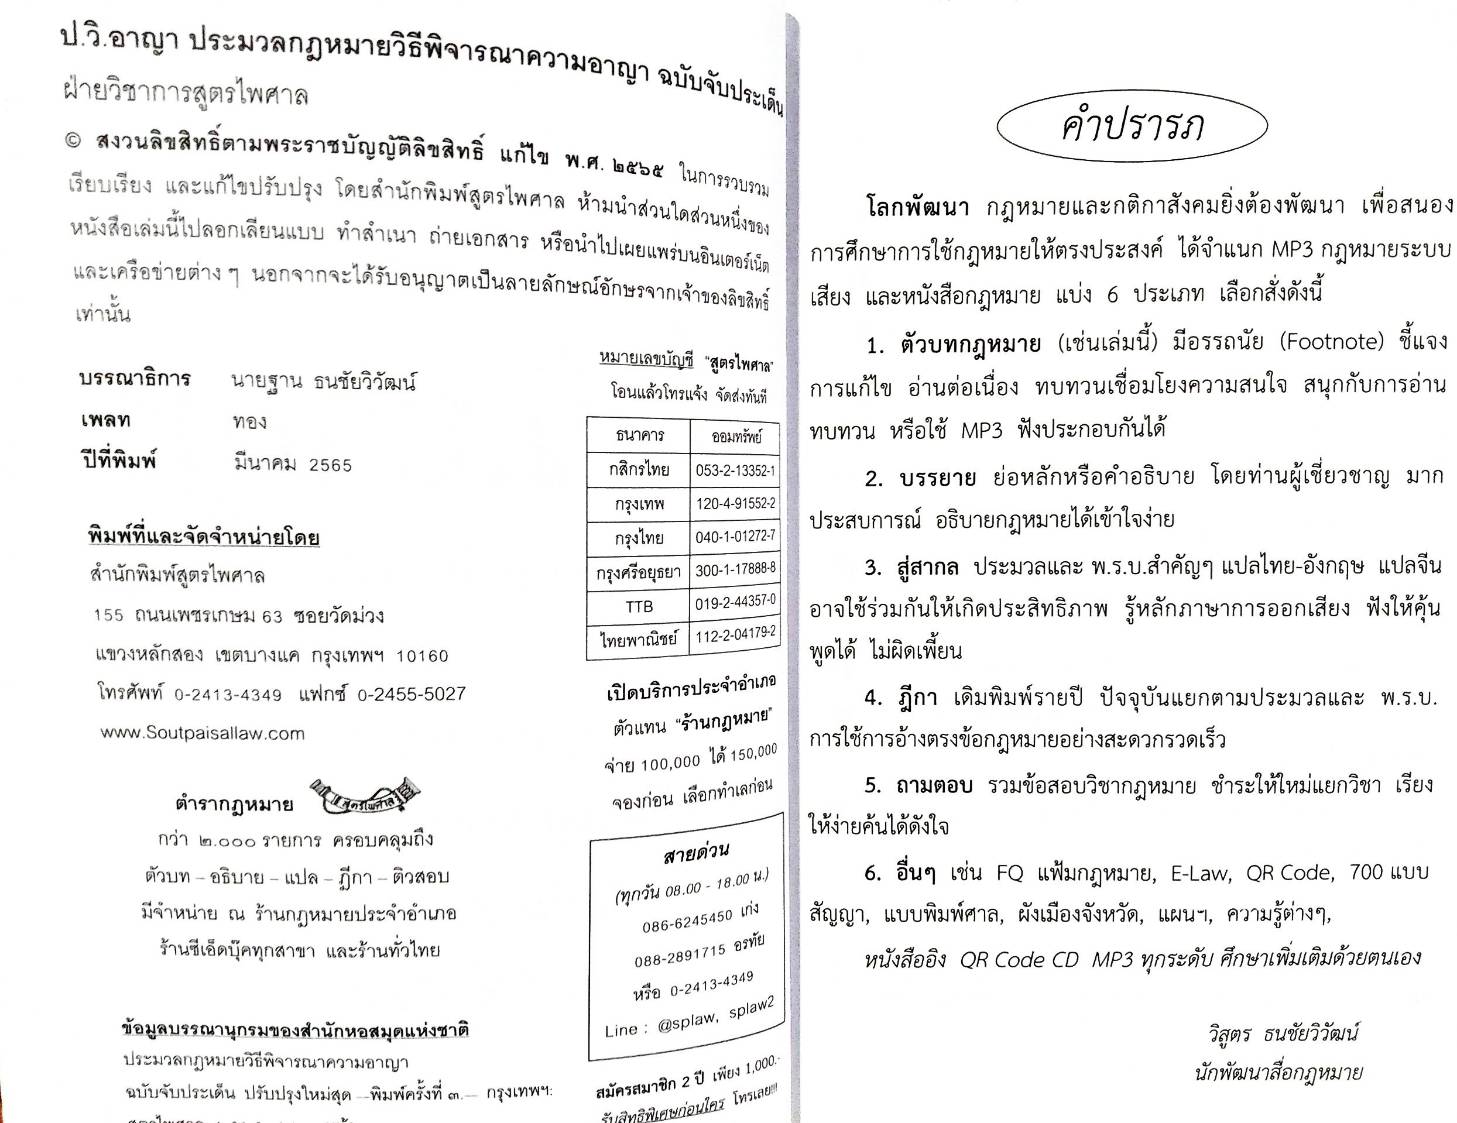 ป.วิ.อาญา ประมวลกฎหมายวิธีพิจารณาความอาญา ฉบับจับประเด็น
ฝ่ายวิชาการสูตรไพศาล
© สงวนลิขสิทธิ์ตามพระราชบัญญัติลิขสิทธิ์ แก้ไข พ.ศ. ๒๕๖๕ ในการรวบรวม
เรียบเรียง และแก้ไขปรับปรุง โดยสำนักพิมพ์สูตรไพศาล ห้ามนำส่วนใดส่วนหนึ่งของ
หนังสือเล่มนี้ไปลอกเลียนแบบ ทำสำเนา ถ่ายเอกสาร หรือนำไปเผยแพร่บนอินเตอร์เน็ต
และเครือข่ายต่าง ๆ นอกจากจะได้รับอนุญาตเป็นลายลักษณ์อักษรจากเจ้าของลิขสิทธิ์
เท่านั้น
บรรณาธิการ นายฐาน ธนชัยวิวัฒน์
เพลท ทอง
ปีที่พิมพ์ มีนาคม 2565
พิมพ์ที่และจัดจำหน่ายโดย
สำนักพิมพ์สูตรไพศาล
155 ถนนเพชรเกษม 63 ซอยวัดม่วง
แขวงหลักสอง เขตบางแค กรุงเทพฯ 10160
โทรศัพท์ 0-2413-4349 แฟกซ์ 0-2455-5027
www.Soutpaisallaw.com
ตำรากฎหมาย สูตรไพศาล
กว่า ๒.๐๐๐ รายการ ครอบคลุมถึง
ตัวบท – อธิบาย – แปล – ฎีกา – ติวสอบ
มีจำหน่าย ณ ร้านกฎหมายประจำอำเภอ
ร้านซีเอ็ดบุ๊คทุกสาขา และร้านทั่วไทย
ข้อมูลบรรณานุกรมของสำนักหอสมุดแห่งชาติ
ประมวลกฎหมายวิธีพิจารณาความอาญา
ฉบับจับประเด็น ปรับปรุงใหม่สุด —พิมพ์ครั้งที่ ๓.— กรุงเทพฯ:
หมายเลขบัญชี "สูตรไพศาล"
โอนแล้วโทรแจ้ง จัดส่งทันที
ธนาคาร ออมทรัพย์
กสิกรไทย 053-2-13352-1
กรุงเทพ 120-4-91552-2
กรุงไทย 040-1-01272-7
กรุงศรีอยุธยา 300-1-17888-8
TTB 019-2-44357-0
ไทยพาณิชย์ 112-2-04179-2
เปิดบริการประจำอำเภอ
ตัวแทน "ร้านกฎหมาย"
จ่าย 100,000 ได้ 150,000
จองก่อน เลือกทำเลก่อน
สายด่วน
(ทุกวัน 08.00 - 18.00 น.)
086-6245450 เก่ง
088-2891715 อรทัย
หรือ 0-2413-4349
Line : @splaw, splaw2
สมัครสมาชิก 2 ปี เพียง 1,000.-
รับสิทธิพิเศษก่อนใคร โทรเลย!!!
คำปรารภ
โลกพัฒนา กฎหมายและกติกาสังคมยิ่งต้องพัฒนา เพื่อสนอง
การศึกษาการใช้กฎหมายให้ตรงประสงค์ ได้จำแนก MP3 กฎหมายระบบ
เสียง และหนังสือกฎหมาย แบ่ง 6 ประเภท เลือกสั่งดังนี้
1. ตัวบทกฎหมาย (เช่นเล่มนี้) มีอรรถนัย (Footnote) ชี้แจง
การแก้ไข อ่านต่อเนื่อง ทบทวนเชื่อมโยงความสนใจ สนุกกับการอ่าน
ทบทวน หรือใช้ MP3 ฟังประกอบกันได้
2. บรรยาย ย่อหลักหรือคำอธิบาย โดยท่านผู้เชี่ยวชาญ มาก
ประสบการณ์ อธิบายกฎหมายได้เข้าใจง่าย
3. สู่สากล ประมวลและ พ.ร.บ.สำคัญๆ แปลไทย-อังกฤษ แปลจีน
อาจใช้ร่วมกันให้เกิดประสิทธิภาพ รู้หลักภาษาการออกเสียง ฟังให้คุ้น
พูดได้ ไม่ผิดเพี้ยน
4. ฎีกา เดิมพิมพ์รายปี ปัจจุบันแยกตามประมวลและ พ.ร.บ.
การใช้การอ้างตรงข้อกฎหมายอย่างสะดวกรวดเร็ว
5. ถามตอบ รวมข้อสอบวิชากฎหมาย ชำระให้ใหม่แยกวิชา เรียง
ให้ง่ายค้นได้ดังใจ
6. อื่นๆ เช่น FQ แฟ้มกฎหมาย, E-Law, QR Code, 700 แบบ
สัญญา, แบบพิมพ์ศาล, ผังเมืองจังหวัด, แผนฯ, ความรู้ต่างๆ,
หนังสืออิง QR Code CD MP3 ทุกระดับ ศึกษาเพิ่มเติมด้วยตนเอง
วิสูตร ธนชัยวิวัฒน์
นักพัฒนาสื่อกฎหมาย